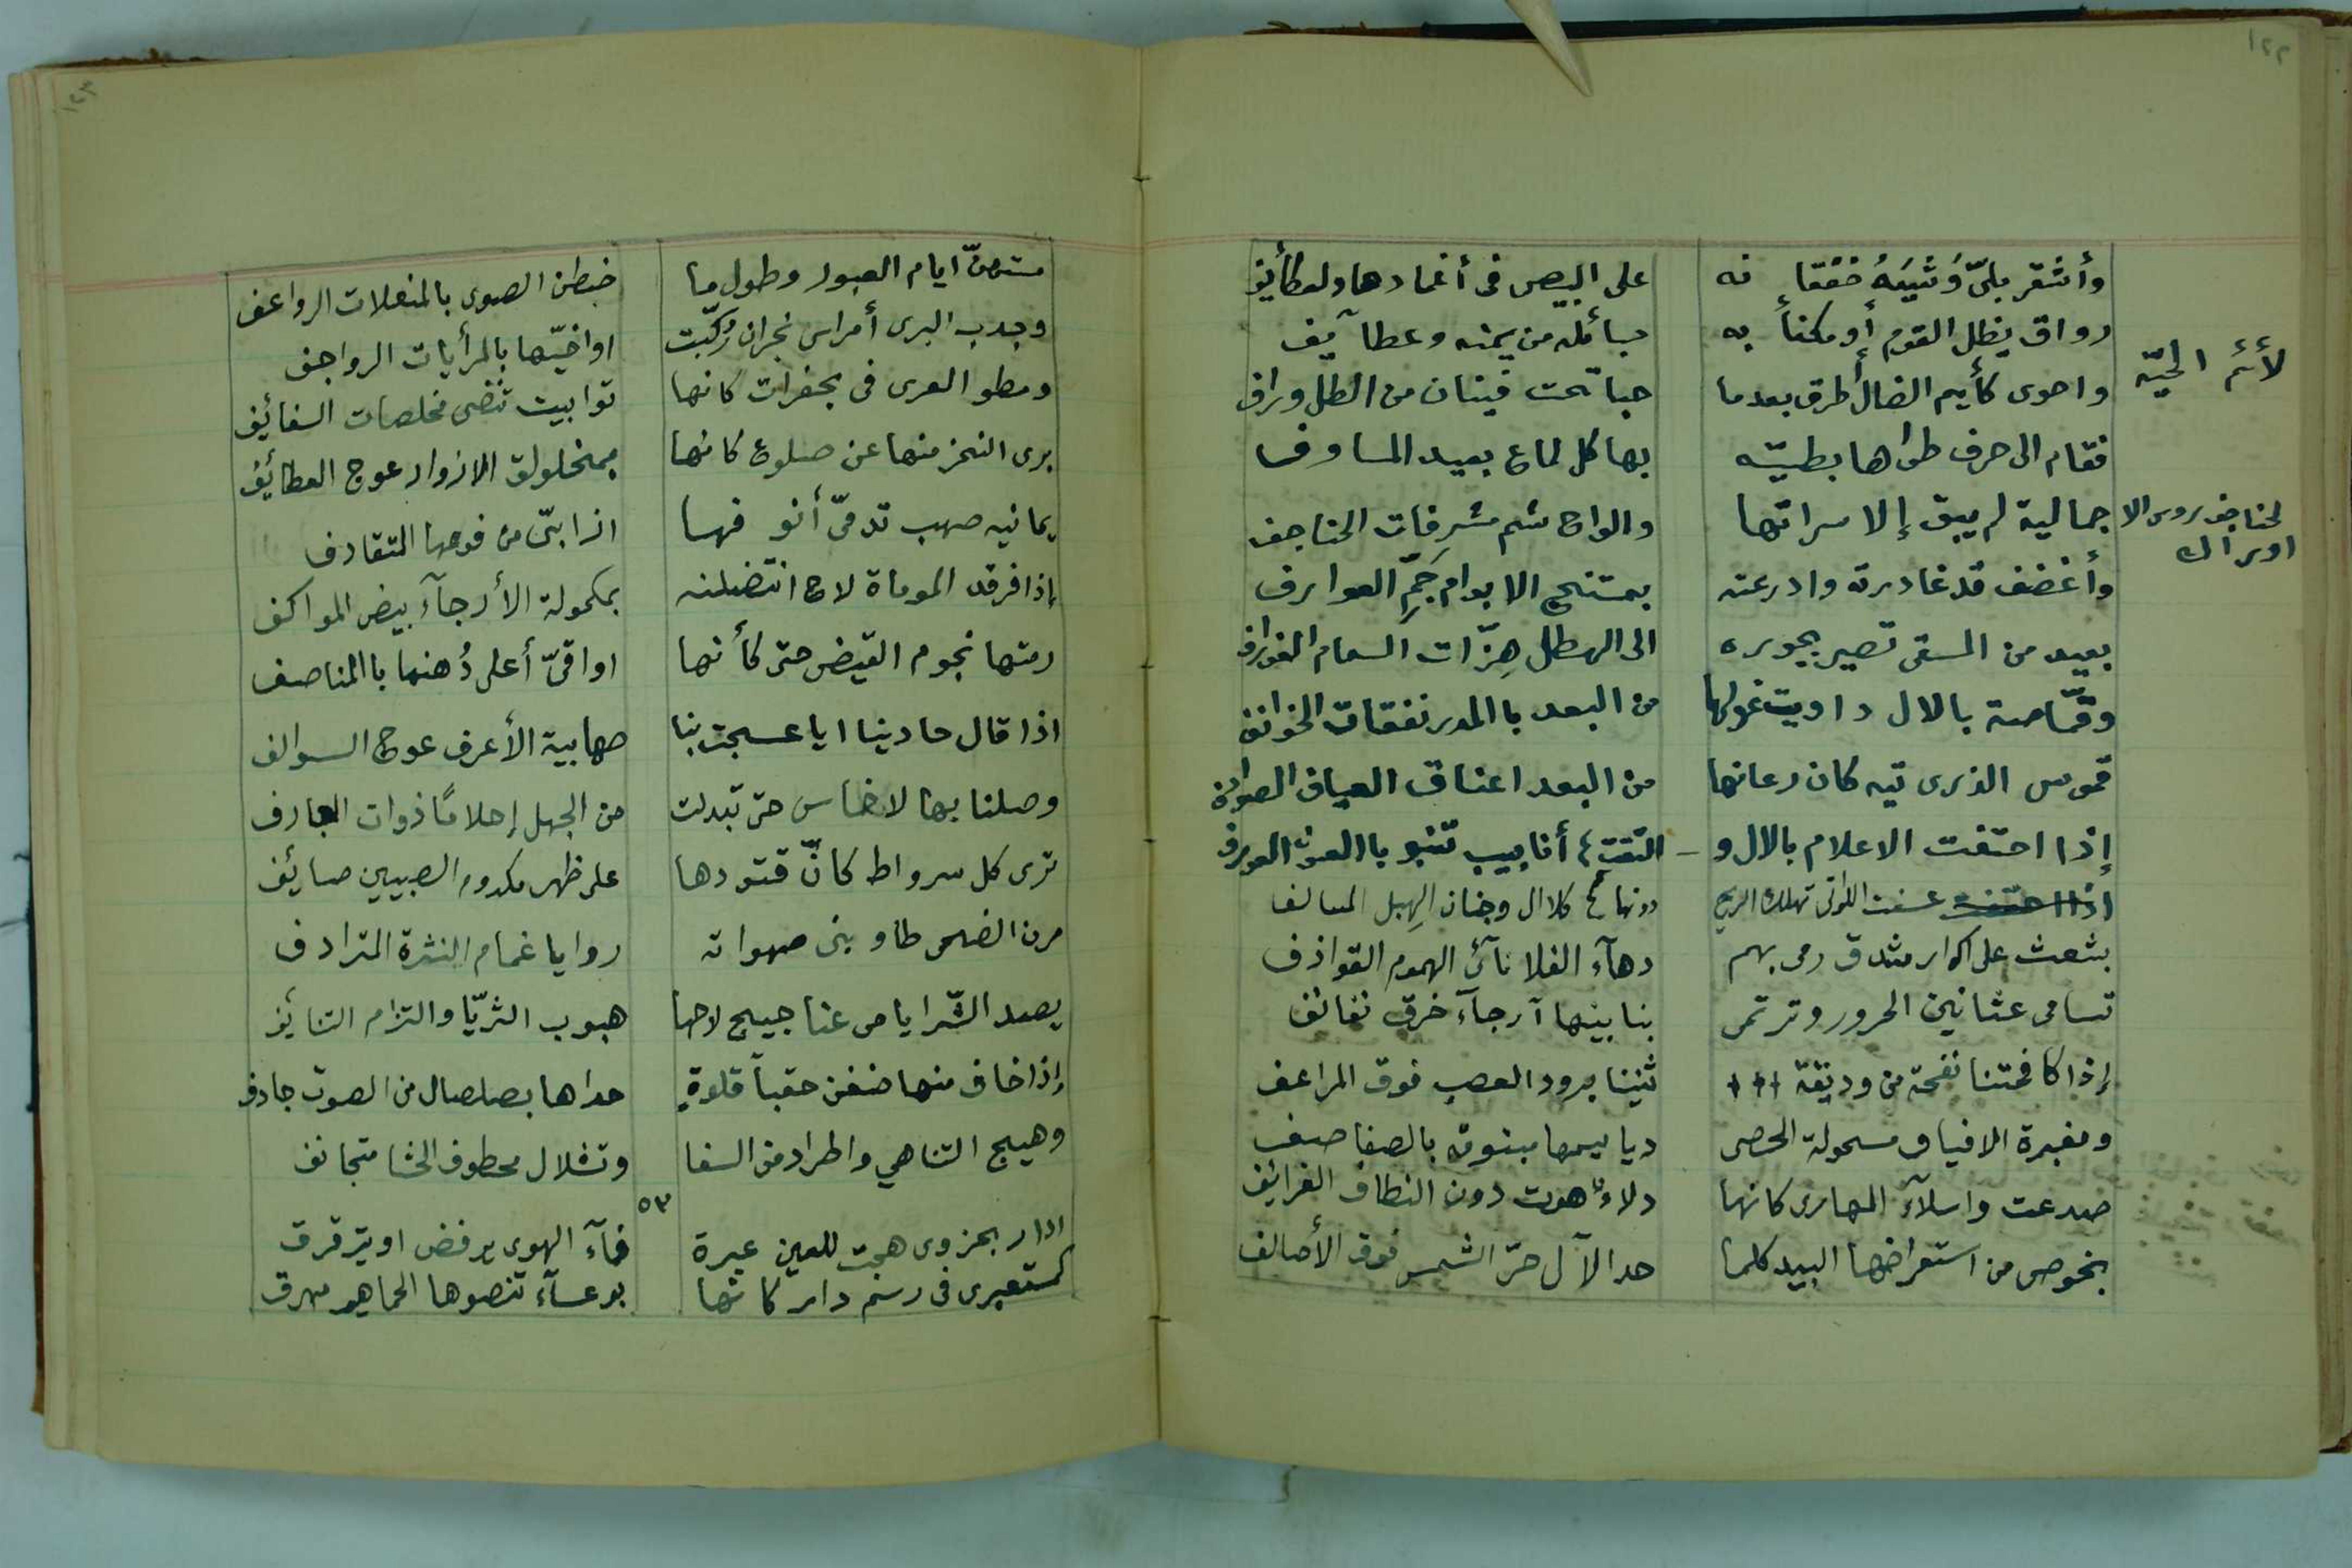 ١٢٢
وأشقر بلىّ وَشْيَهُ خفقا نه على البيض فى أغمادها والعطأيف
رواق يظل القوم أو مكفأ به حبائله من يمنه وعطآيف
لأئم الحيّة
واحوى كأيم الضال أطرق بعد ما حبا تحت فينان من الظل وراف
فقام الى حرف طواها بطيّه بها كل لماع بعيد المساوف
جمالية لم يبق إلا سراتها والواح شم مشرفات الحناجف
لحناجف روس الا اوراك
وأغضف قد غادرته وادرعته بمستنبح الابوام جَمِّ العوازف
بعيد من المسقى تصير بجوزه الى الهطل هِزّات السمام الغوارف
وقمّاصة بالال داويت غولها من البعد با المدر نفقات الخوانف
قموس الذرى تيه كان رعانها من البعد اعناق العياف الصوادف
إذا احتفت الاعلام بالال و التقت أنابيب تنبو با العيون العوارف
عسفت اللواتى تهلك الريح دونها كلال وجنان الهِبِل المسالف
بشعث على اكوار شدق رمى بهم دهآء الفلا نآئى الهموم القواذف
تسامى عثانين الحرور وترتمى بنا بينها آرجآء خرق نفانف
إذا كافحتنا نفحة من وديقة ثنينا برود العصب فوق المراعف
ومغبرة الافياف مسحولة الحصى دياميمها مبنوقة بالصفاصف
صدعت واسلآء المهارى كانها دلاء هوت دون النطاف الغرائف
بخوص من استعراضها البيد كلما حدا الآل حرّ الشمس فوق الأصالف
١٢٣
مستهنّ ايام العبور وطول ما خبطن الصوى بالمنعلات الرواعف
وجذب البرى أمراس نجران رُكّبت اواخيّها بالمرأيات الرواجف
ومطو العرى فى مجفرات كانها توابيت تنضى مخلصات السفائف
برى النحز منها عن ضلوع كانها بمخلولق الازوار عوج العطائف
يمانيه صهب تدمىّ أنو فها اذا بىّ من فوعها المتقادف
إذا فرقد الموماة لاح انتضلنه بمكحولة الأرجآء بيض المواكف
رمتها نجوم القيض حتى كأنها اواقىّ أعلى دُهنها با المناصف
اذا قال حادينا ايا عسجت بنا صهابية الأعرف عوج السوالف
وصلنا بها لاخماس حتى تبدلت من الجهل إحلامًا ذوات العجارف
ترى كل سرواط كانّ قتودها على ظهر مكدوم الصبيين صائف
مرن الضحى طاو بنى صهواته روايا غمام النثرة المترادف
يصد الشّرايا من عناجيج لاحها هبوب الثريّا والتزام التنايف
إذا خاف منها ضغن حقبآ قلوةٍ حداها بصلصال من الصوت جادف
وهيج التناهي واطراد من السفا وتشلال محطوف الحشا متجانف
٥٣
ادار بحزوى هجت للعين عبرة فمآء الهوى يرفض او يترقرق
كمستعبرى فى رسم دار كانها بوعسآء تنصوها الجماهير مهرق